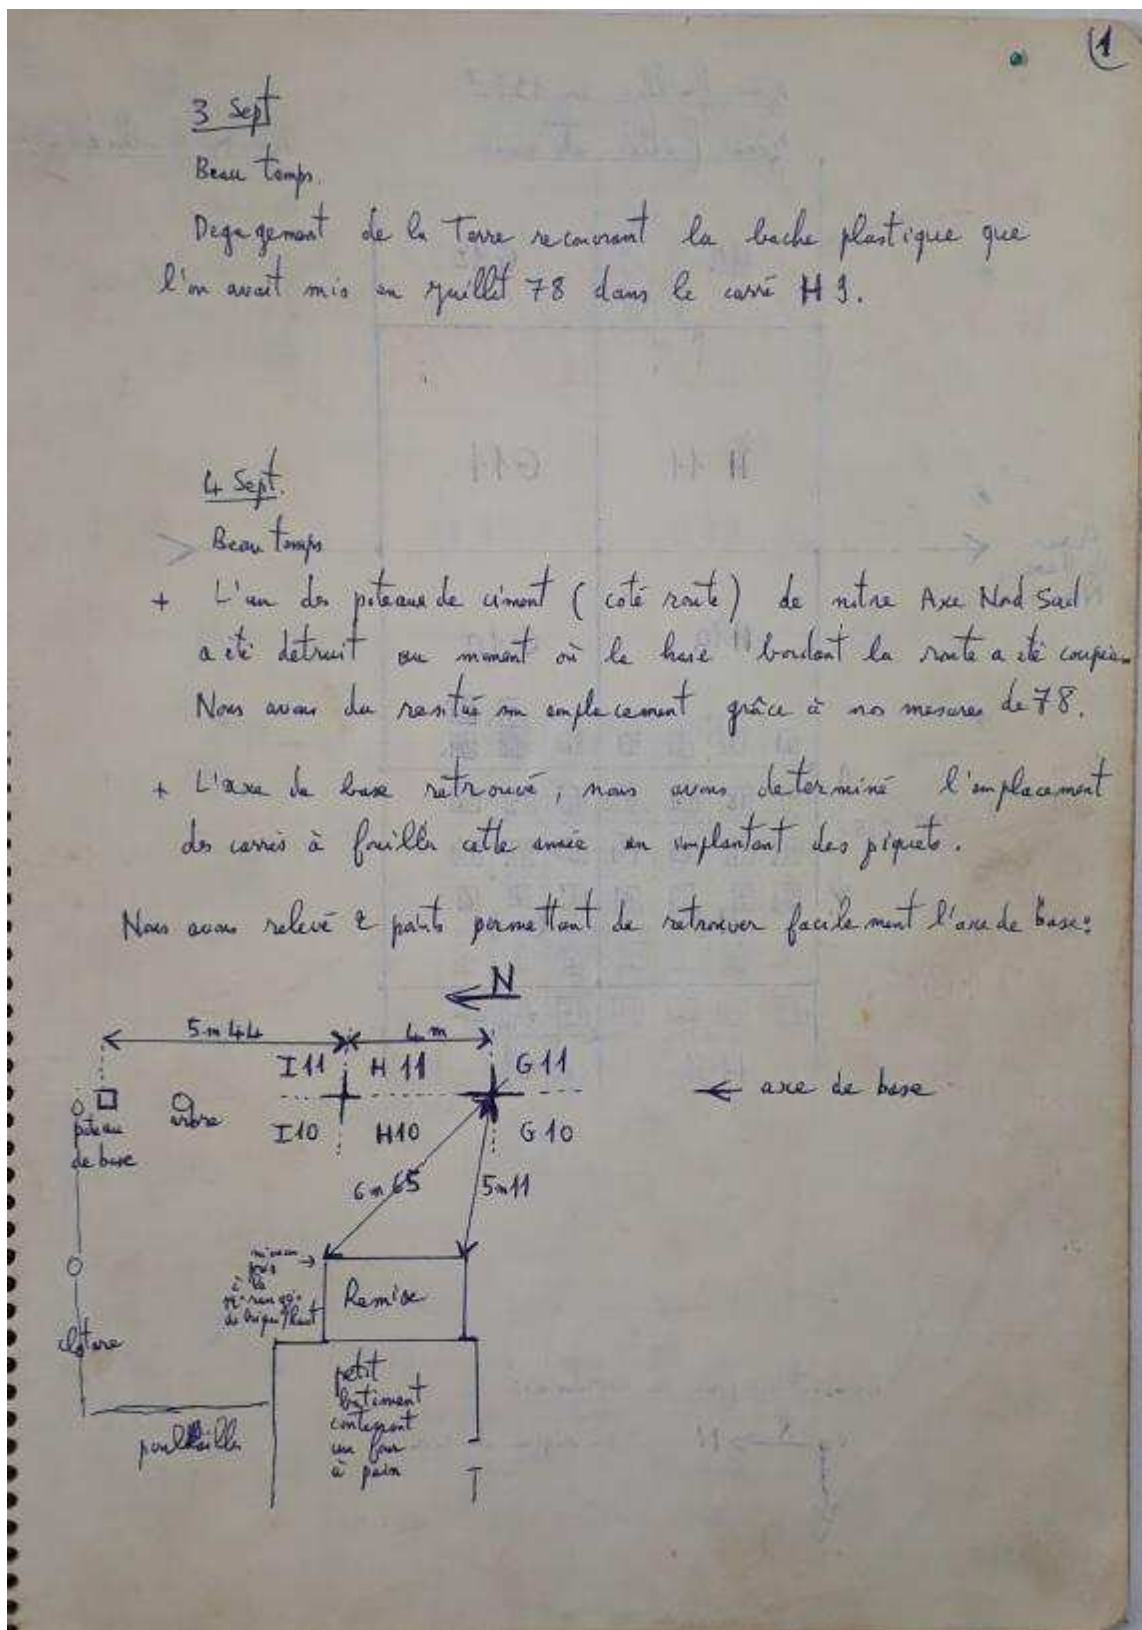 1
3 Sept
Beau temps.
Degagement de la Terre recouvrant la bache plastique que
l'on avait mis en juillet 78 dans le carré H 9.
4 Sept.
Beau temps
+ L'un des poteaux de ciment (coté route) de notre Axe Nord Sud
a été detruit au moment où la haie bordant la route a été coupée.
Nous avons du resitué son emplacement grâce à nos mesures de 78.
+ L'axe de base retrouvé, nous avons determiné l'emplacement
des carrés à fouiller cette année en implantant des piquets.
Nous avons relevé 2 points permettant de retrouver facilement l'axe de base:
N
5m44 4m
I11 H11 G11
axe de base
poteau
de base
arbre
I10 H10 G10
6m65 5m11
niveau
pris
à la
de brique / haut
Remise
cloture
petit
batiment
contenant
un four
à pain
poulailler